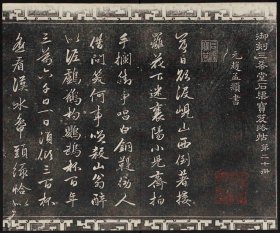 御刻三希堂石渠寶笈法帖第二十冊
元趙孟頫書
落日欲沒峴山西倒著接
䍦花下迷襄陽小兒齊拍
手攔街爭唱白銅鞮傍人
借問笑何事笑殺山翁醉
似泥鸕鶿杓鸚鵡杯百年
三萬六千日一日須傾三百杯
遙看漢水鴨頭綠恰